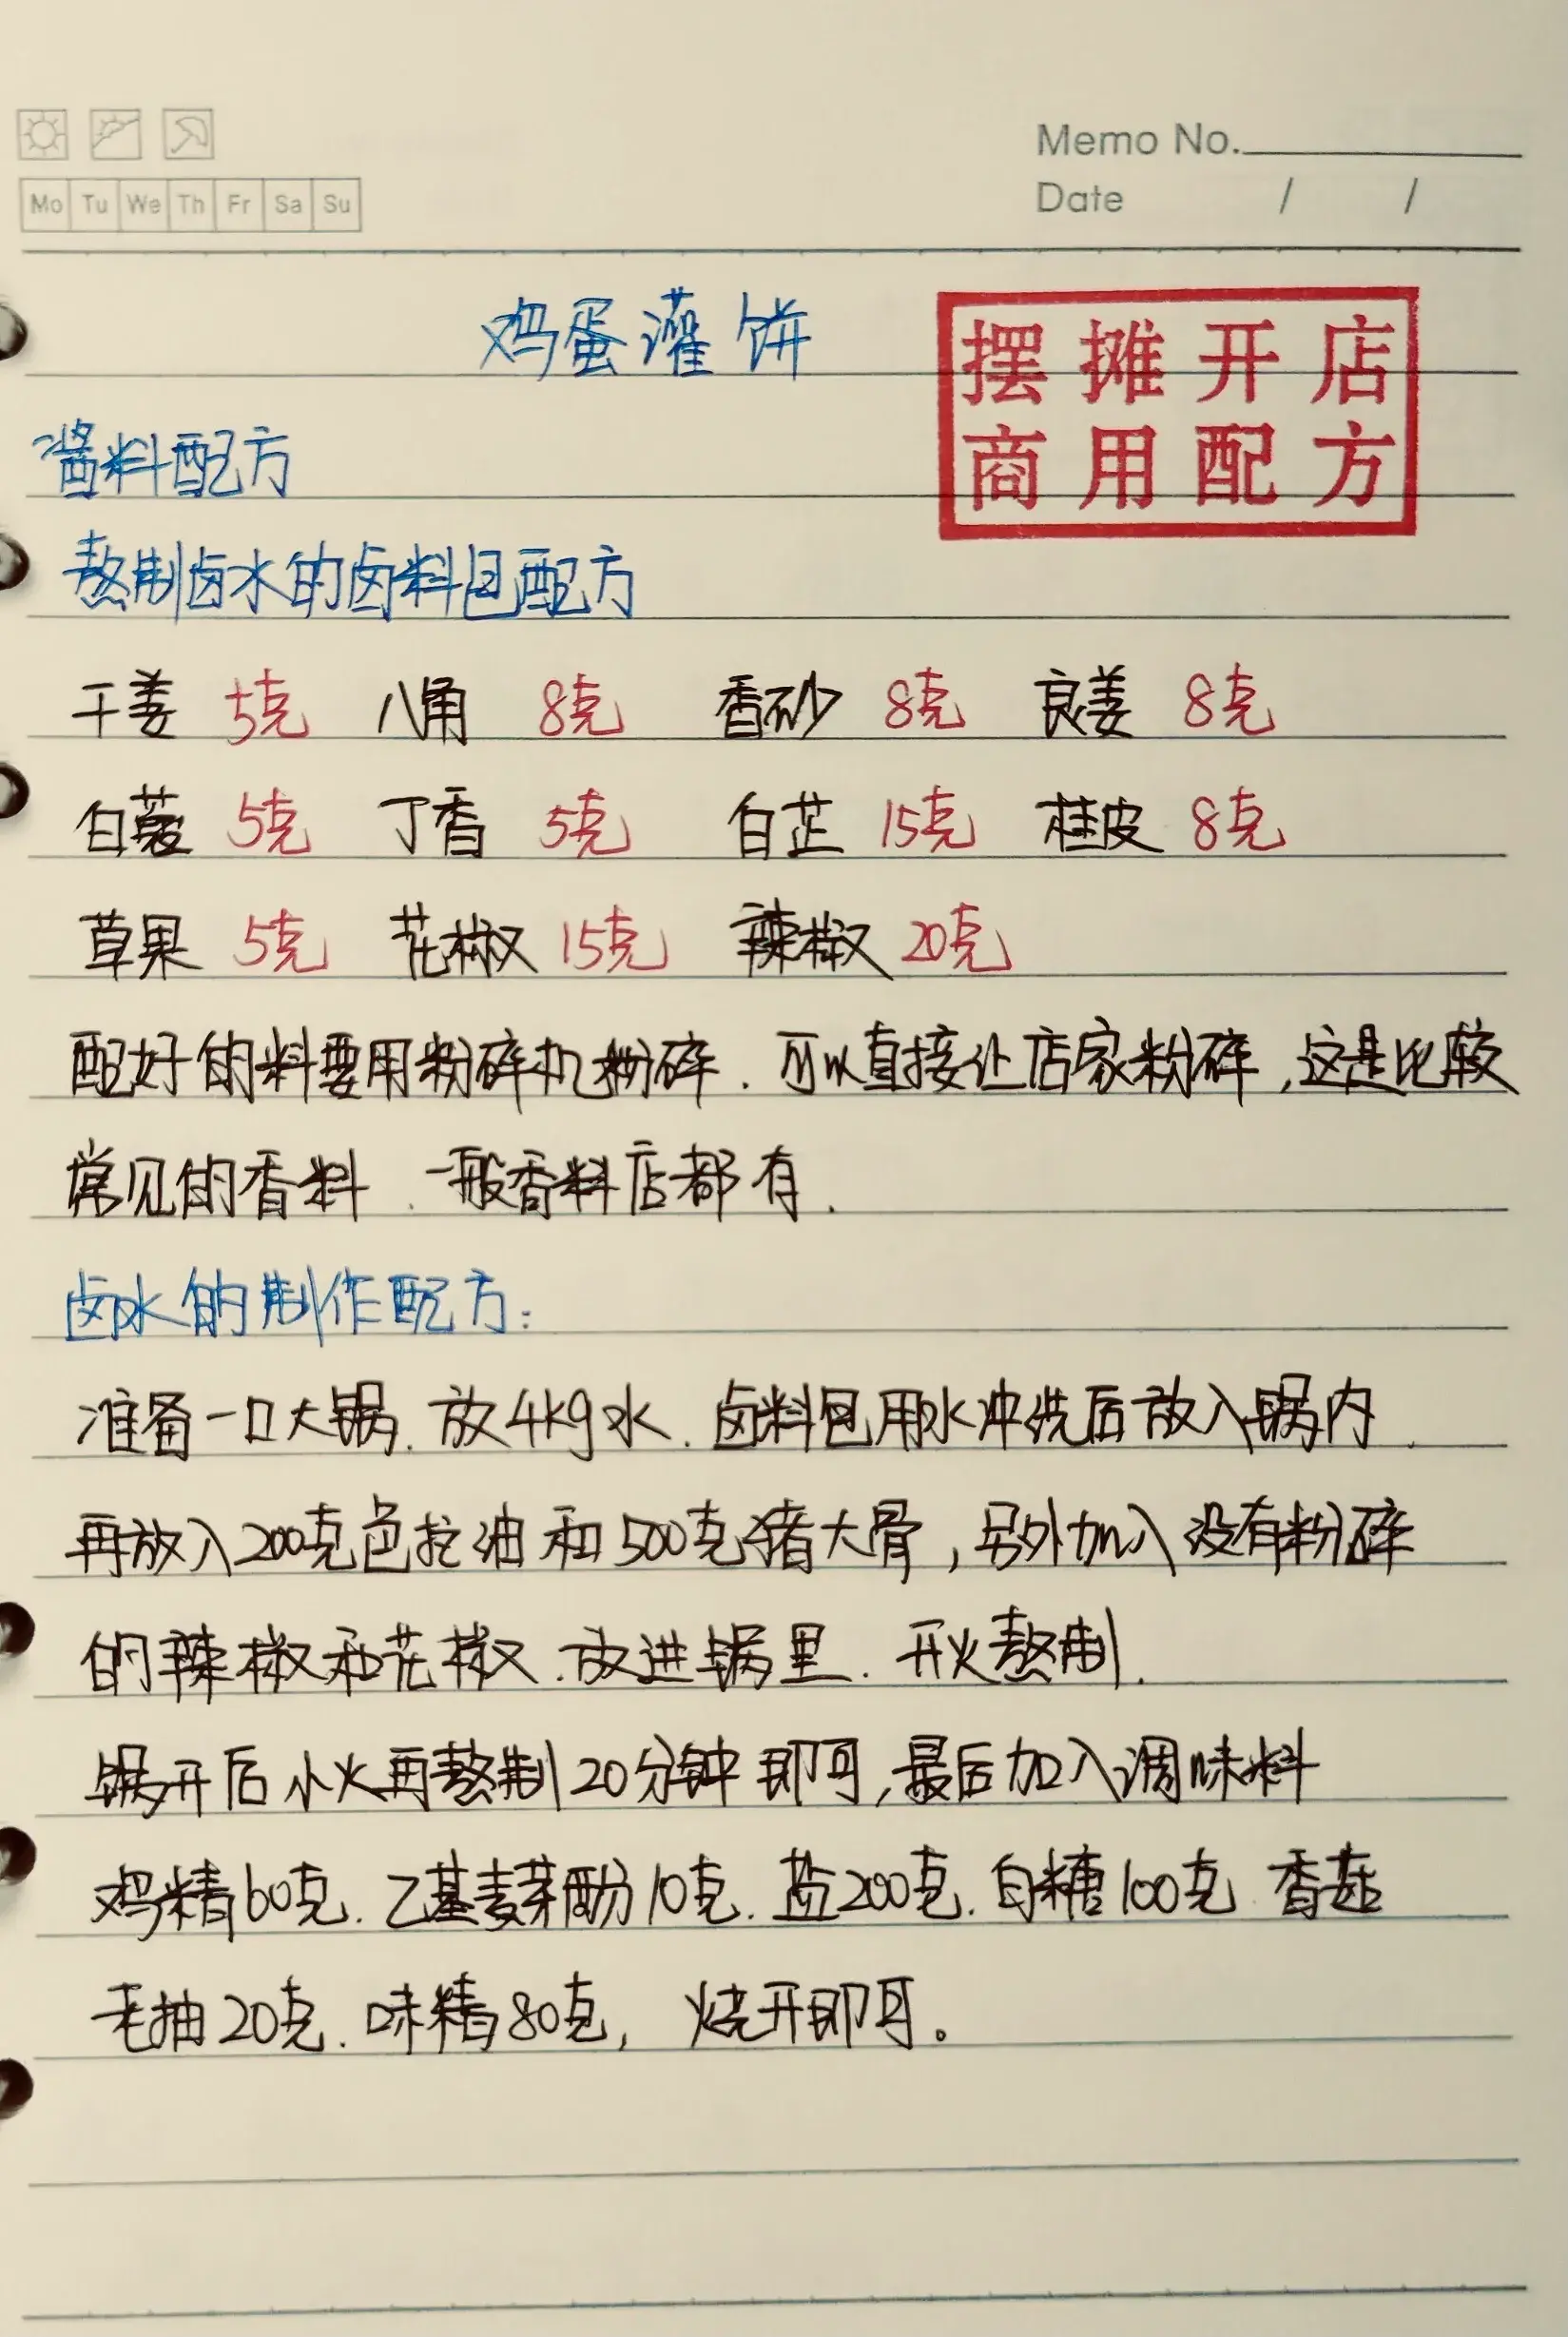 Memo No.
Mo Tu We Th Fr Sa Su
Date / /
鸡蛋灌饼
摆摊开店
商用配方
酱料配方
熬制卤水的卤料包配方
干姜 5克 八角 8克 香砂 8克 良姜 8克
白蔻 5克 丁香 5克 白芷 15克 桂皮 8克
草果 5克 花椒 15克 辣椒 20克
配好的料要用粉碎机粉碎.可以直接让店家粉碎,这是比较
常见的香料.一般香料店都有.
卤水的制作配方:
准备一口大锅.放4kg水.卤料包用水冲洗后放入锅内.
再放入200克色拉油和500克猪大骨,另外加入没有粉碎
的辣椒和花椒.放进锅里.开火熬制.
锅开后小火再熬制20分钟即可,最后加入调味料
鸡精60克.乙基麦芽酚10克.盐200克.白糖100克.香菇
老抽20克.味精80克,烧开即可。